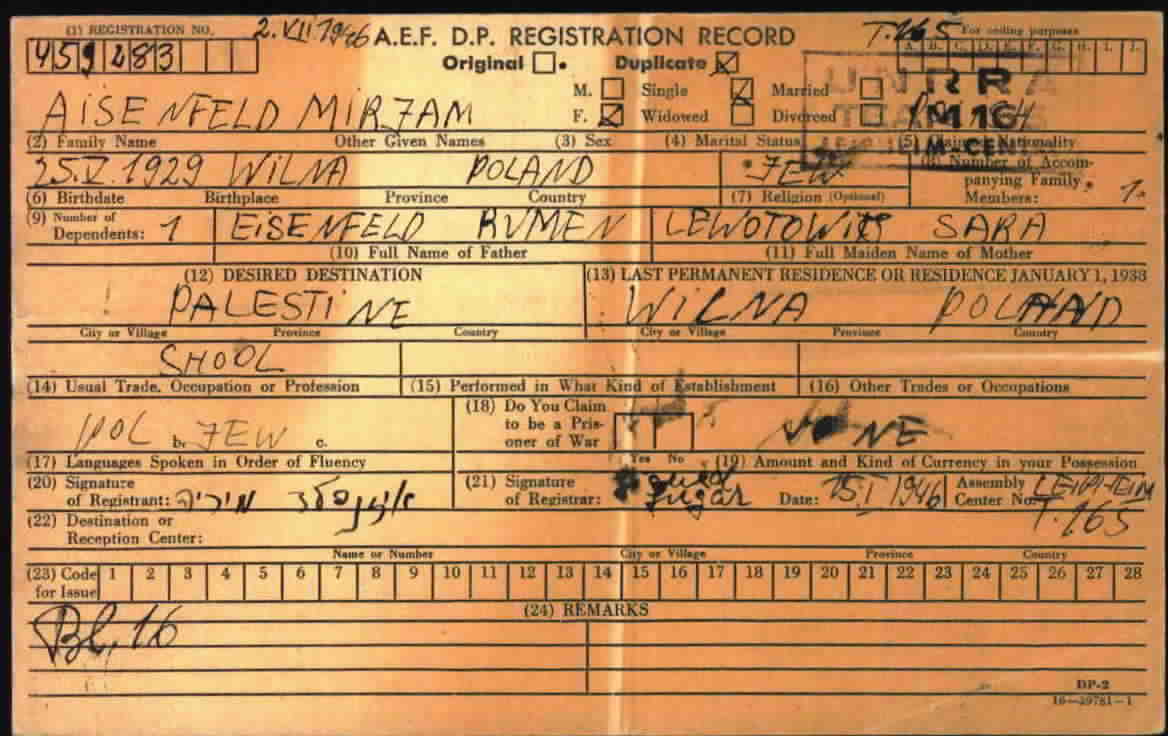 (1) REGISTRATION NO. 2.VII 1946 A.E.F. D.P. REGISTRATION RECORD T.165 For coding purposes
459283 Original Duplicate A. B. C. D. E. F. G. H. I. J.
M. Single Married UNRRA
AISENFELD MIRJAM F. Widowed Divorced
(2) Family Name Other Given Names (3) Sex (4) Marital Status (5) Claimed Nationality
25.V.1929 WILNA POLAND JEW (8) Number of Accompanying Family Members: 1.
(6) Birthdate Birthplace Province Country (7) Religion (Optional)
(9) Number of Dependents: 1 EISENFELD RUMEN LEWOTOWITZ SARA
(10) Full Name of Father (11) Full Maiden Name of Mother
(12) DESIRED DESTINATION (13) LAST PERMANENT RESIDENCE OR RESIDENCE JANUARY 1, 1938
PALESTINE WILNA POLAND
City or Village Province Country City or Village Province Country
SHOOL
(14) Usual Trade, Occupation or Profession (15) Performed in What Kind of Establishment (16) Other Trades or Occupations
POL b. JEW c. (18) Do You Claim to be a Prisoner of War NONE
(17) Languages Spoken in Order of Fluency Yes No (19) Amount and Kind of Currency in your Possession
(20) Signature of Registrant: אייזנפלד מירים (21) Signature of Registrar: Date: 15.I 1946 Assembly Center No. LEIPHEIM
T.165
(22) Destination or Reception Center:
Name or Number City or Village Province Country
(23) Code for Issue 1 2 3 4 5 6 7 8 9 10 11 12 13 14 15 16 17 18 19 20 21 22 23 24 25 26 27 28
(24) REMARKS
Bl, 16
DP-2
16—39781-1